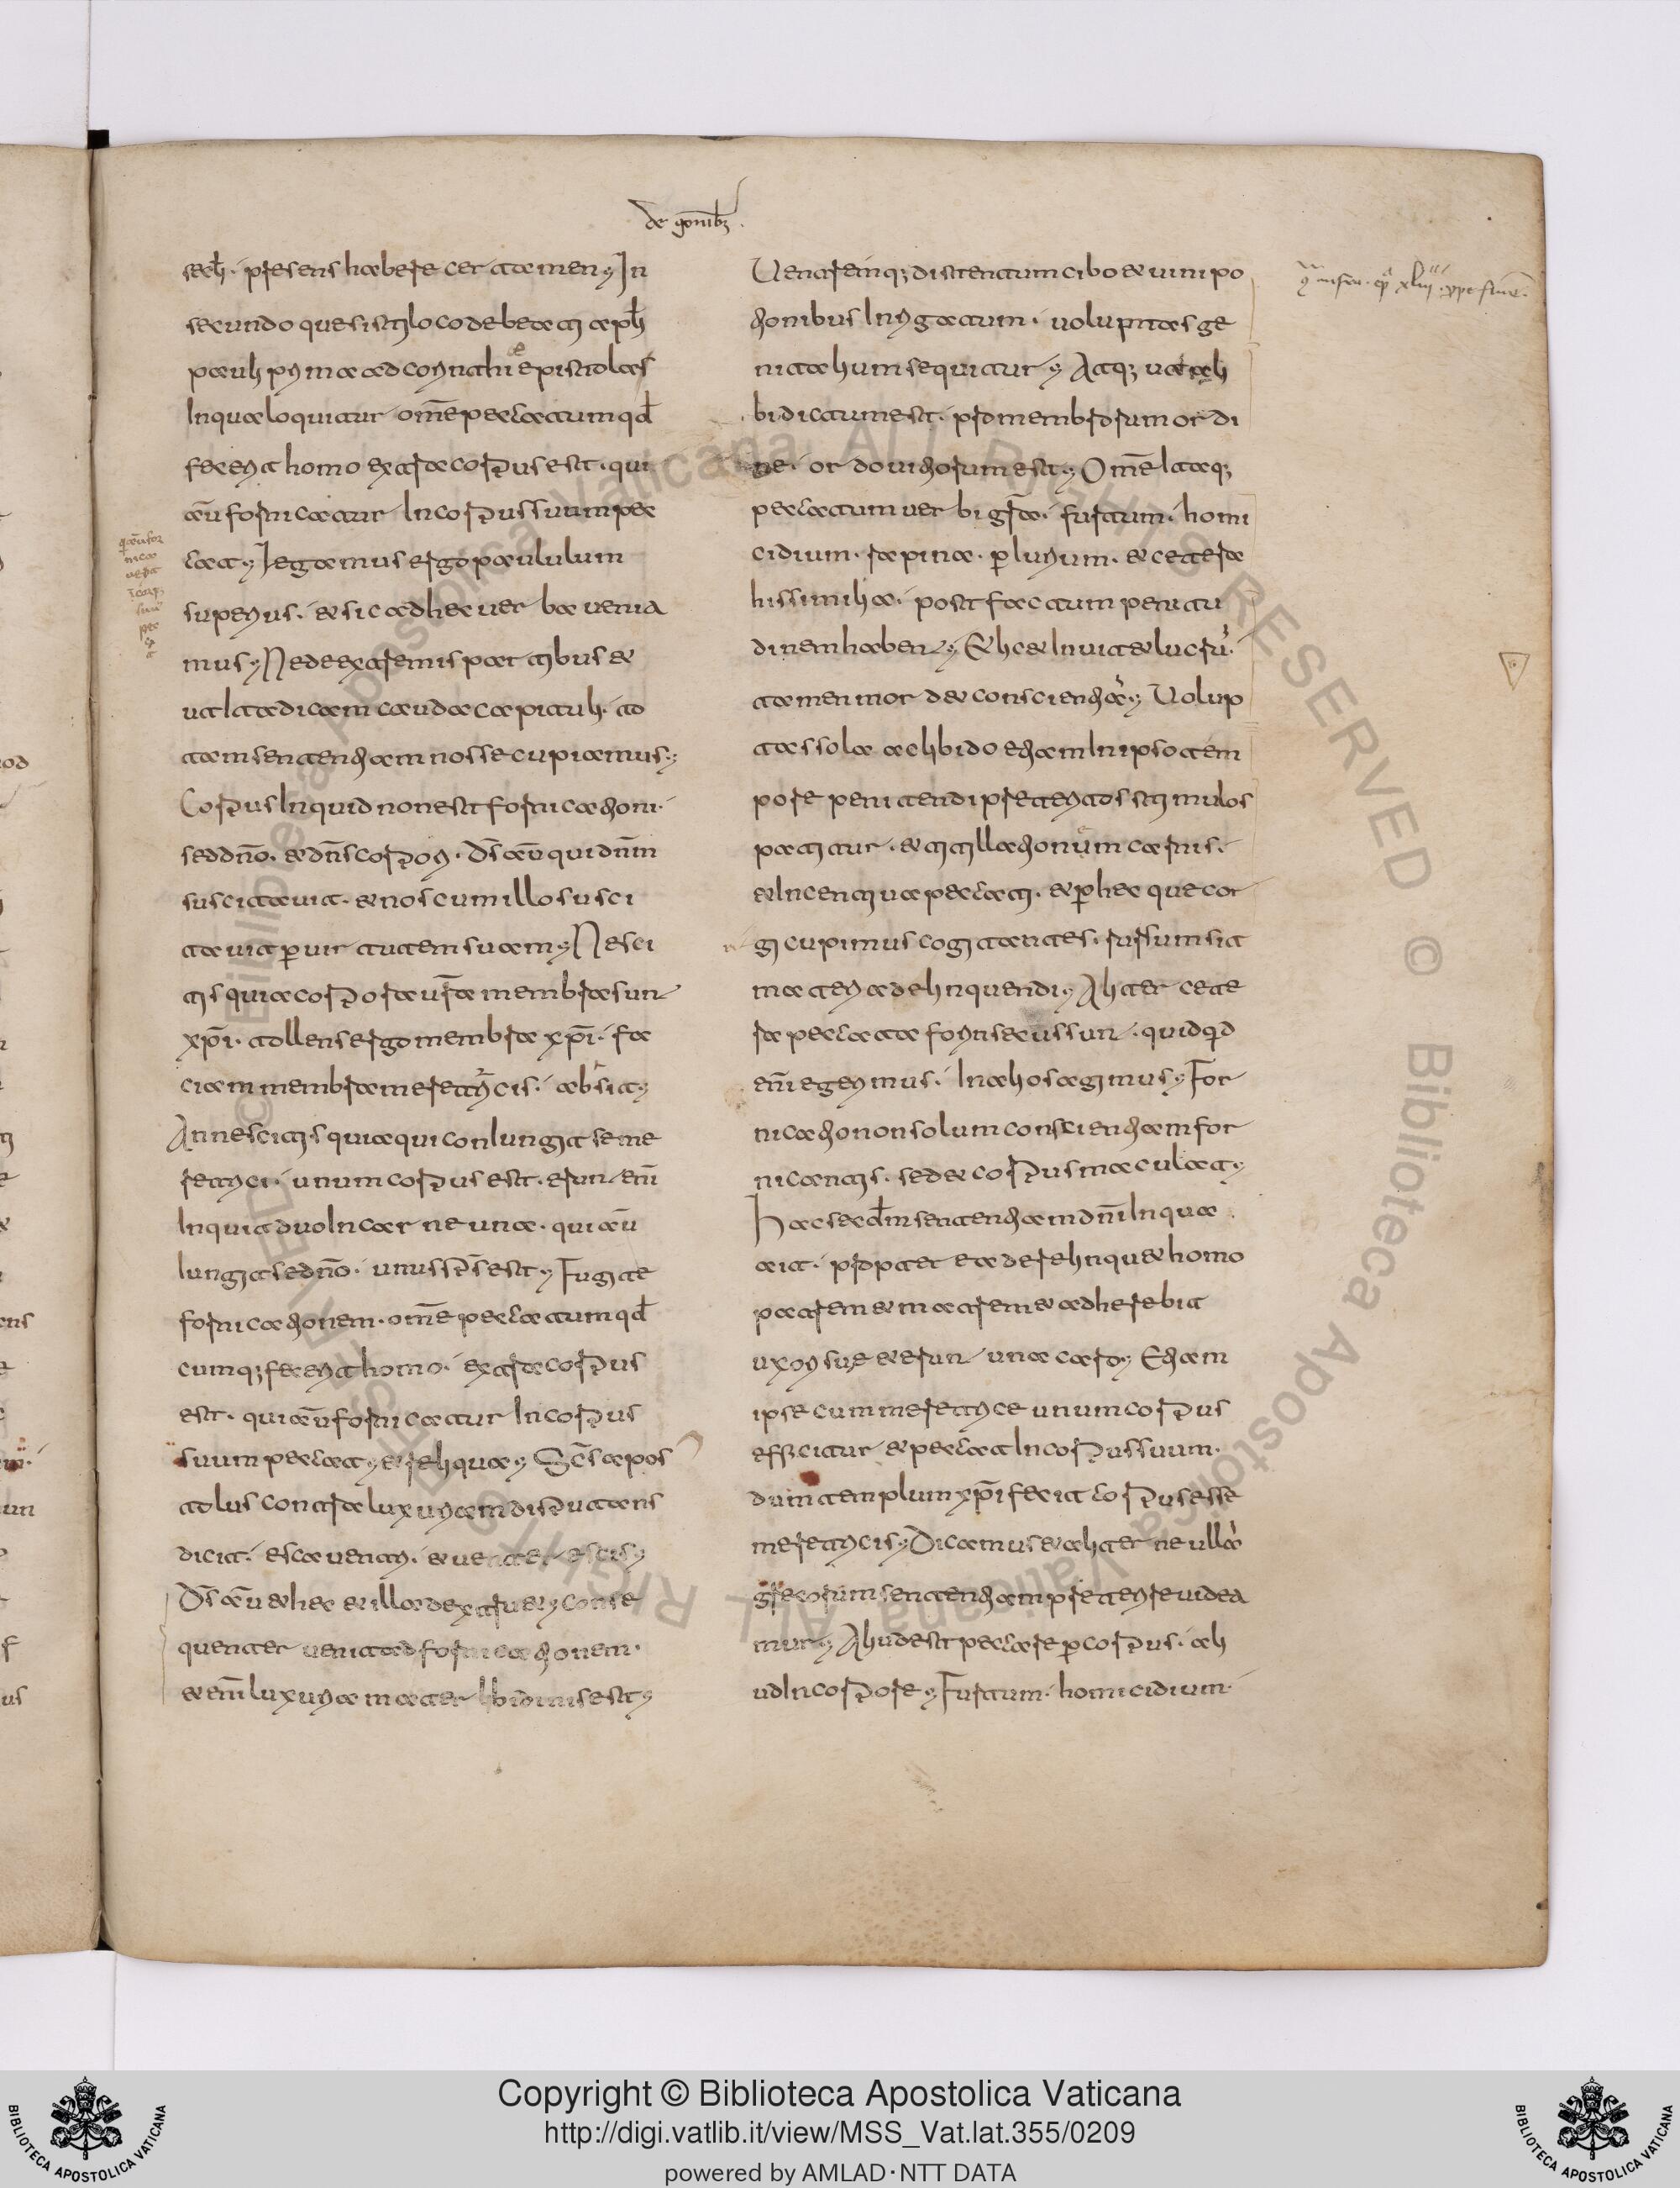 de gonib;
secli. presens habere certamen; In
secundo quesisti loco debeati apli
pauli prima ad corinthiæ epistolas
In qua loquitur om̄e peccatum qd̄
fecerit homo extra corpus est. qui
aū fornicatur In corpus suum pec
cat; Iegamus ergo paululum
superius. et sic ad hec verba venia
mus; Ne de extremis partibus et
ut ita dicam cauda capituli. to
tam sententiam nosse cupiamus;
Corpus Inquid non est fornicationi.
sed dn̄o. et dn̄s corpori. Ds̄ aū qui dn̄m
suscitavit. et nos cum illo susci
tavit ꝑ virtutem suam; Nesci
tis quia corpora ur̄a membra sunt
xp̄i. tollens ergo membra xp̄i. fa
ciam membra meretricis. absit;
An nescitis quia qui coniungit se me
retrici. unum corpus est. erunt eni̅
Inquit duo In carne una. qui aū
iungit se dn̄o. unus sp̄s est; Fugite
fornicationem. om̄e peccatum qd̄
cumq; fecerit homo. extra corpus
est. qui aū fornicatur In corpus
suum peccat; et reliqua; Sc̄s apos
tolus contra luxuriam disputans
dicit. esca ventri. et venter escis;
Ds̄ aū et hec et illa destruet; conse
quenter venit ad fornicationem.
et eni̅ luxuria mater libidinis est;
q aū for
nica
tĩcorp;
suū
pec
Ventremq; distentum cibo et vini po
tionibus Inrigatum. voluptas ge
nitalium sequitur; Atq; ut ali
bi dictum est. pro membrorum ordi
ne. ordo vitiorum est; Om̄e itaq;
peccatum verbi gr̄a. furtum. homi
cidium. rapina. ꝑiurium. et cetera
his similia. post factum penitu
dinem habent; Et licet Invitet lucrū.
tamen mordet conscientiā; Volup
tas sola ac libido etiam In ipso tem
pore penitendi preteritos stimulos
patitur. et titillationum carnis.
et Incentiva peccati. et ꝑ hec que cor
gi cupimus cogitantes. rursum sit
materia delinquendi; Aliter cete
ra peccata forinsecus sunt. quidqd
eni̅ egerimus. In alios agimus; For
nicatio non solum conscientiam for
nicantis. sed et corpus maculat;
Hac secd̄m sententiam dn̄i In qua
ait. propter ea derelinquet homo
patrem et matrem et adherebit
uxori suę et erunt una caro; Etiam
ipse cum meretrice unum corpus
efficitur et peccat In corpus suum.
dum templum xp̄i fecit corpus esse
meretricis; Dicamus et aliter ne ullā
grecorum sententiam preterire videa
mur; Aliud est peccare ꝑ corpus. ali
ud In corpore; Furtum. homicidium.